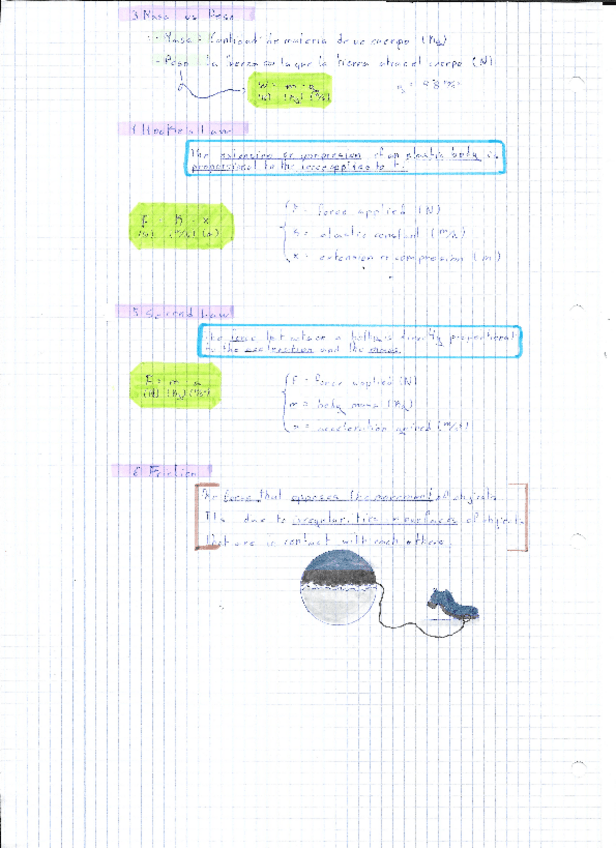 3 Masa vs Peso
- Masa = Cantidad de materia de un cuerpo (Kg)
- Peso = la fuerza con la que la tierra atrae el cuerpo (N)
W = m · g
(N) (Kg) (m/s²)
g = 9'8 m/s²
4 Hooke's Law
The extension or compression of an elastic body is
proportional to the force applied to it.
F = K · x
(N) (N/m) (m)
F = force applied (N)
elastic constant
x = extension or compression (m)
5 Second Law
The force that acts on a body is directly proportional
to the acceleration and the mass.
F = m · a
(N) (Kg) (m/s²)
F = force applied (N)
m = body mass (Kg)
a = acceleration
6 Friction
The force that opposes the movement of objects
It is due to irregularities in surfaces of objects
that are in contact with each other.